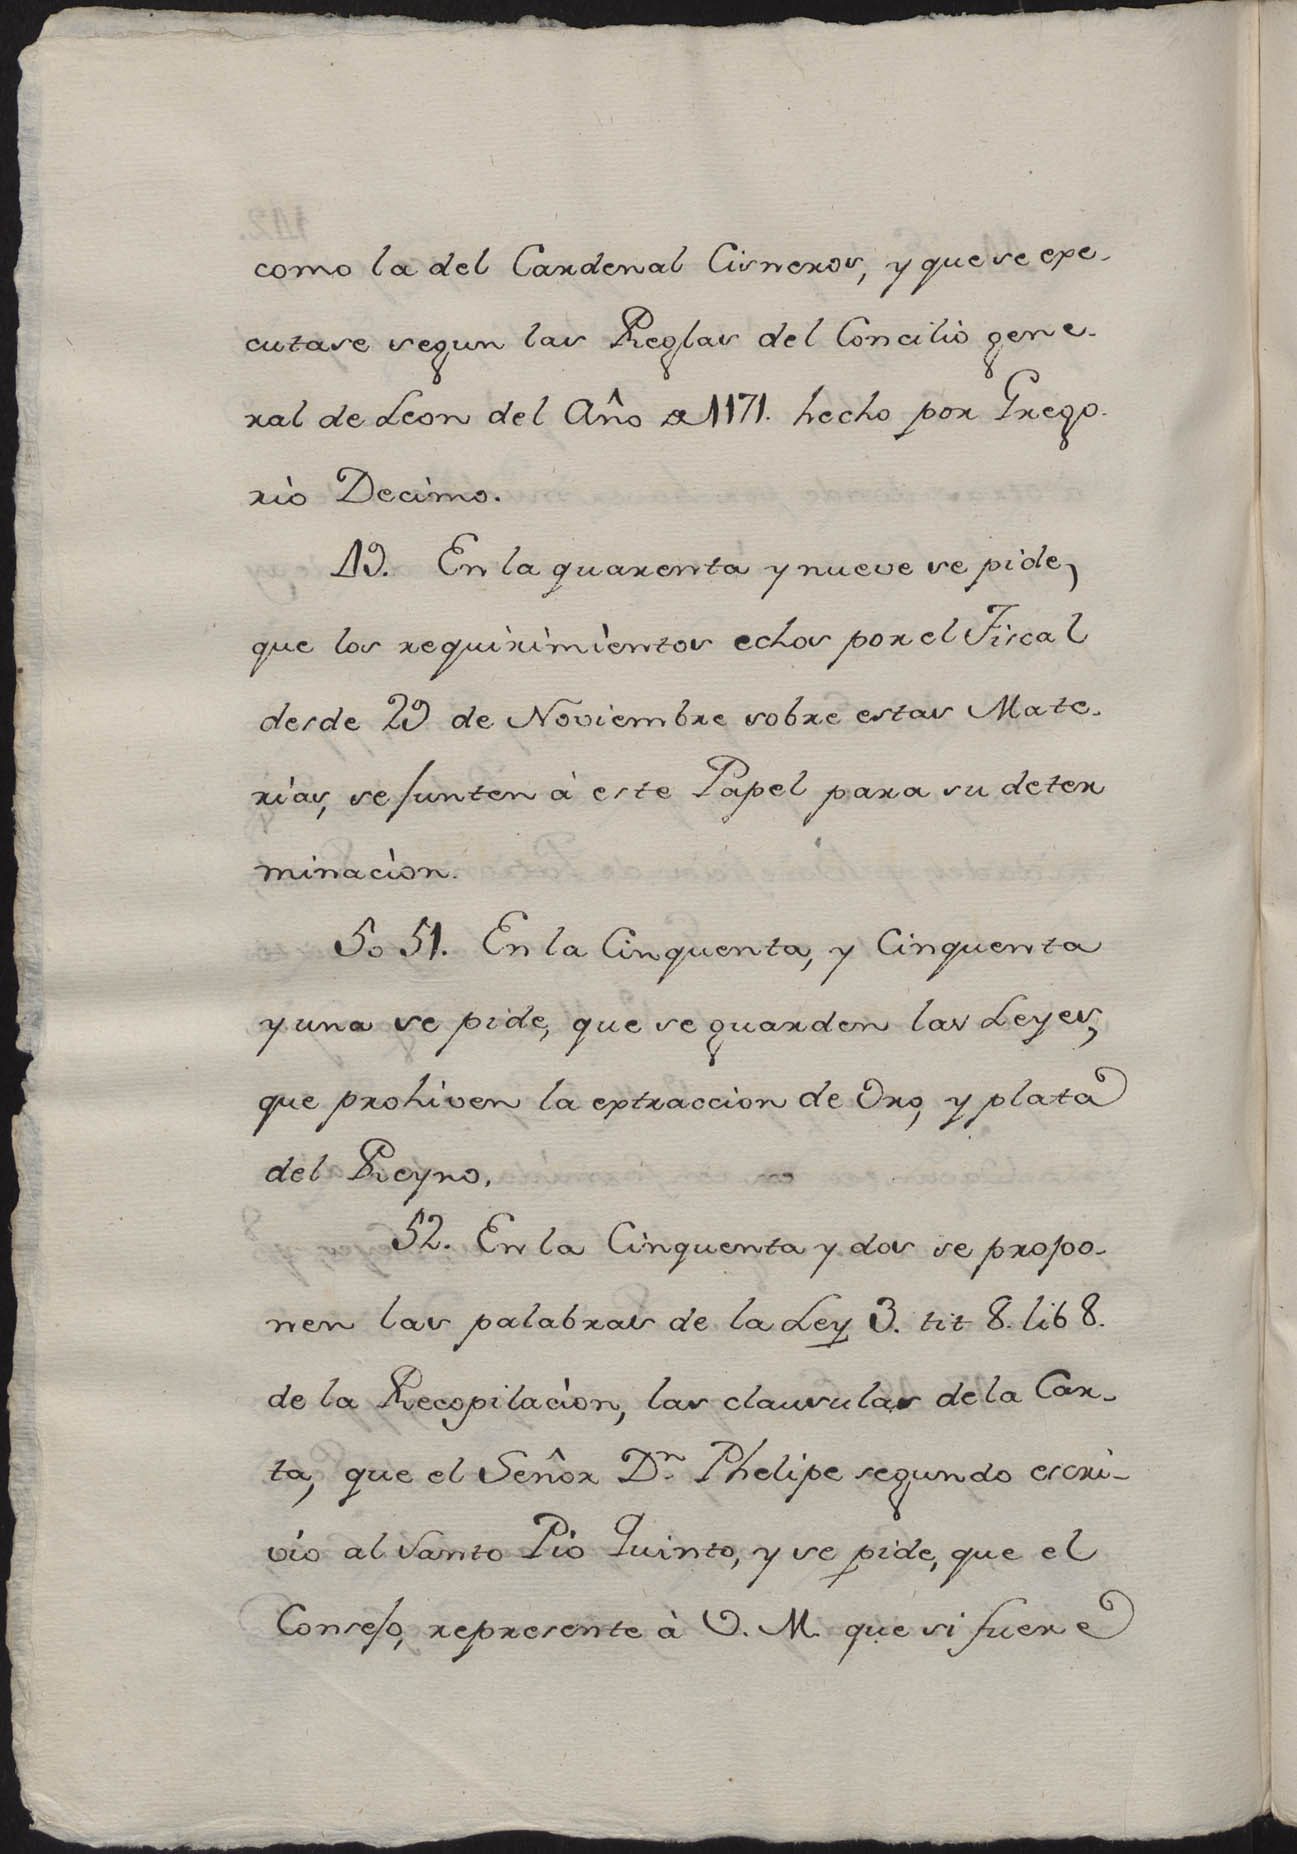 como la del Cardenal Cisneros, y que se exe-
cutase segun las Reglas del Concilio gene-
ral de Leon del Año de 1171. hecho por Grego-
rio Decimo.
49. En la quarenta y nueve se pide,
que los requirimientos echos por el Fiscal
desde 29 de Noviembre sobre estas Mate-
rias, se junten à este Papel para su deter
minacion.
50 51. En la Cinquenta, y Cinquenta
y una se pide, que se guarden las Leyes,
que prohiven la extraccion de Oro, y plata
del Reyno.
52. En la Cinquenta y dos se propo-
nen las palabras de la Ley 3. tit 8. lib 8.
de la Recopilacion, las clausulas de la Car-
ta, que el Señor Dn. Phelipe segundo escri-
vio al Santo Pio Quinto, y se pide, que el
Consejo, represente à V. M. que si fuere